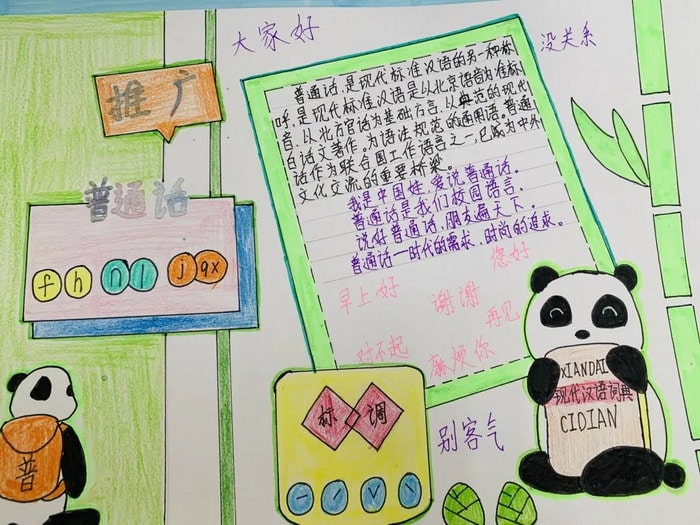 大家好
没关系
推广
普通话
f h n l j qx
普通话是现代标准汉语的另一种称
呼,是现代标准汉语是以北京语音为准标
音,以北方官话为基础方言,以典范的现代
白话文著作。为语法规范的通用语。普通
话作为联合国工作语言之一,已成为中外
文化交流的重要桥梁。
我是中国娃,爱说普通话。
普通话是我们校园语言,
说好普通话,朋友遍天下。
普通话—时代的需求,时尚的追求。
您好
早上好
谢谢
再见
对不起
麻烦你
XIANDAI
现代汉语词典
CIDIAN
标调
ˉ ˊ ˇ ˋ
别客气
普